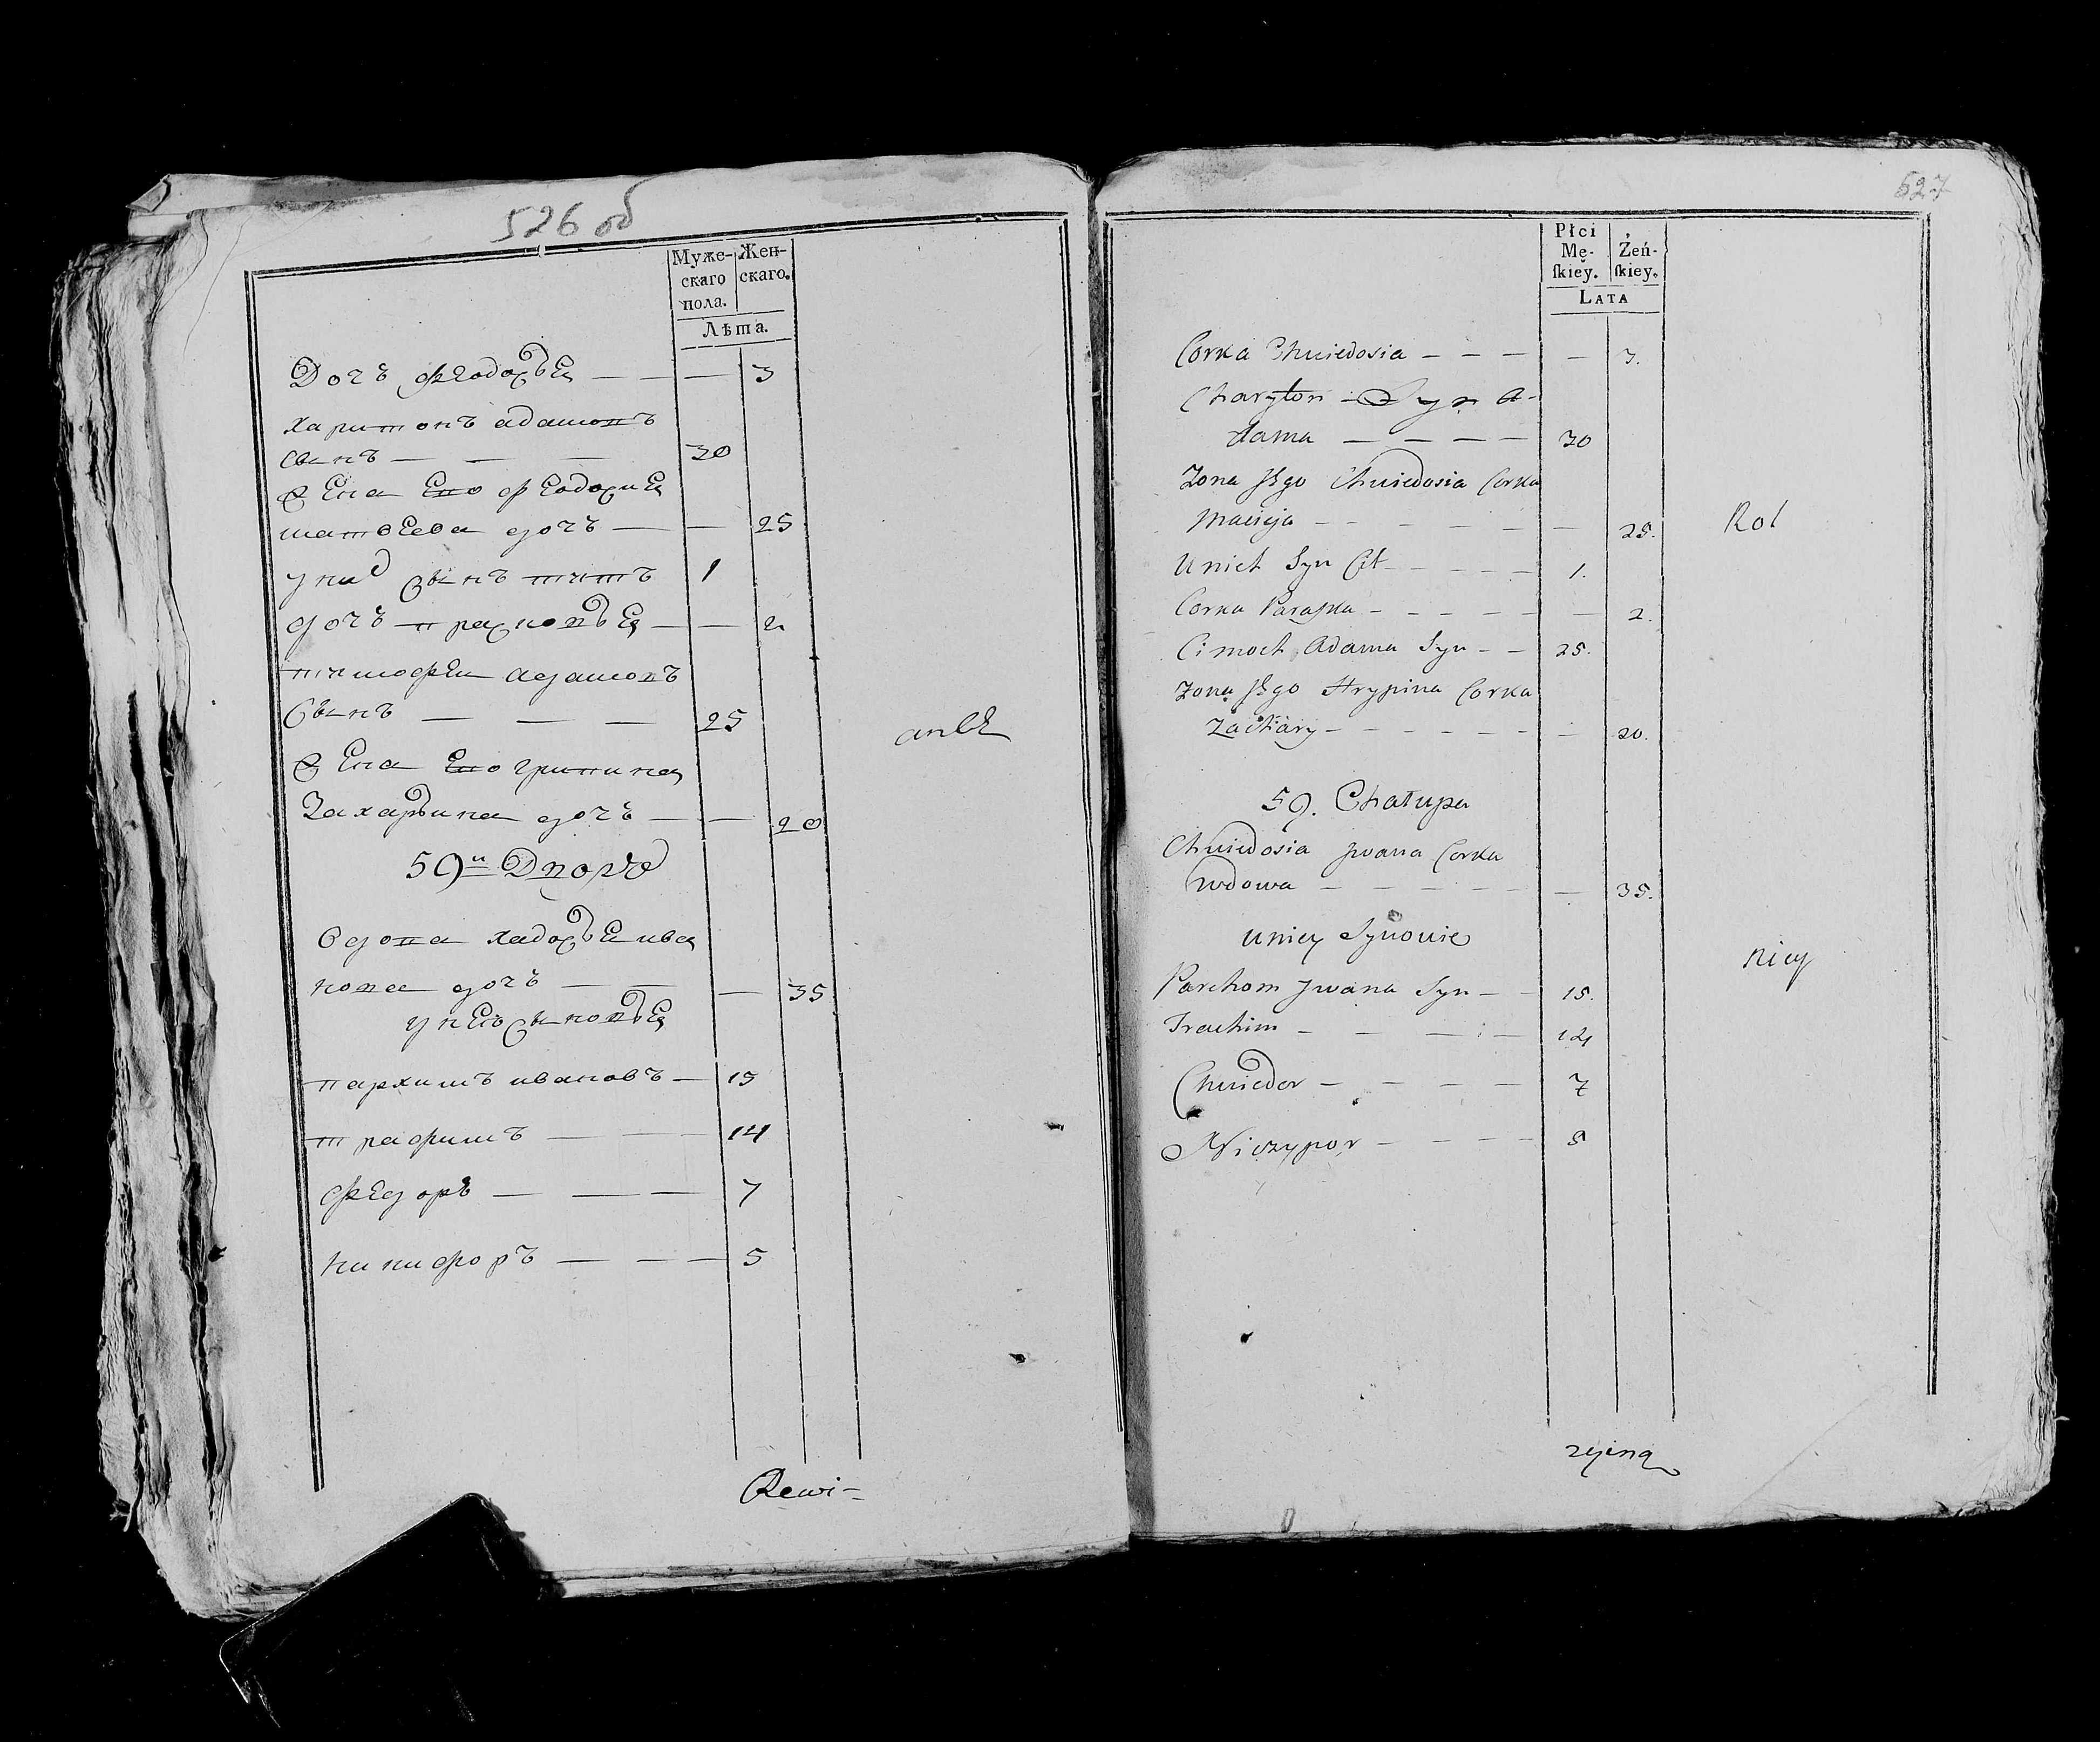 526 об
Муже-
скаго
пола.
Жен-
скаго.
Лѣта.
Дочь Феодосья — — — 3
Харитонъ адамовъ
сынъ — — — 30
Жена Его Феодосия
матвеева дочь — — 25
у них сынъ титъ 1
дочь прасковья — — 2
тимофеи адамовъ
Сынъ — — — 25
Жена Его грипина
Захарьина дочь — — 20
59й Дворъ
Вдова хадосья ива
нова дочь — — — 35
у нея сыновья
пархимъ ивановъ — 15
трафимъ — — 14
Федоръ — — — 7
никифоръ — — — 5
Rewi-
527
Płci
Mę-
ſkieý.
Żeń-
ſkiey.
LATA
Corka Chwiedosia — — — — 3.
Charyton Syn A-
dama — — — — 30
Zona Jego Chwiedosia Corka
Macieja — — — — — — 25.
Rol
U nich Syn Cit — — — — 1.
Corka Paraska — — — — — — 2.
Cimoch Adama Syn — — 25.
Zona Jego Hrypina Corka
Zachary — — — — — — — 20.
59. Chałupa
Chwiedosia Jwana Corka
Wdowa — — — — — — 35.
U niey Synowie
nicy
Parchom Jwana Syn — — 15.
Trachim — — — — 14
Chwiedor — — — — 7
Niczypor — — — — 5
zyina